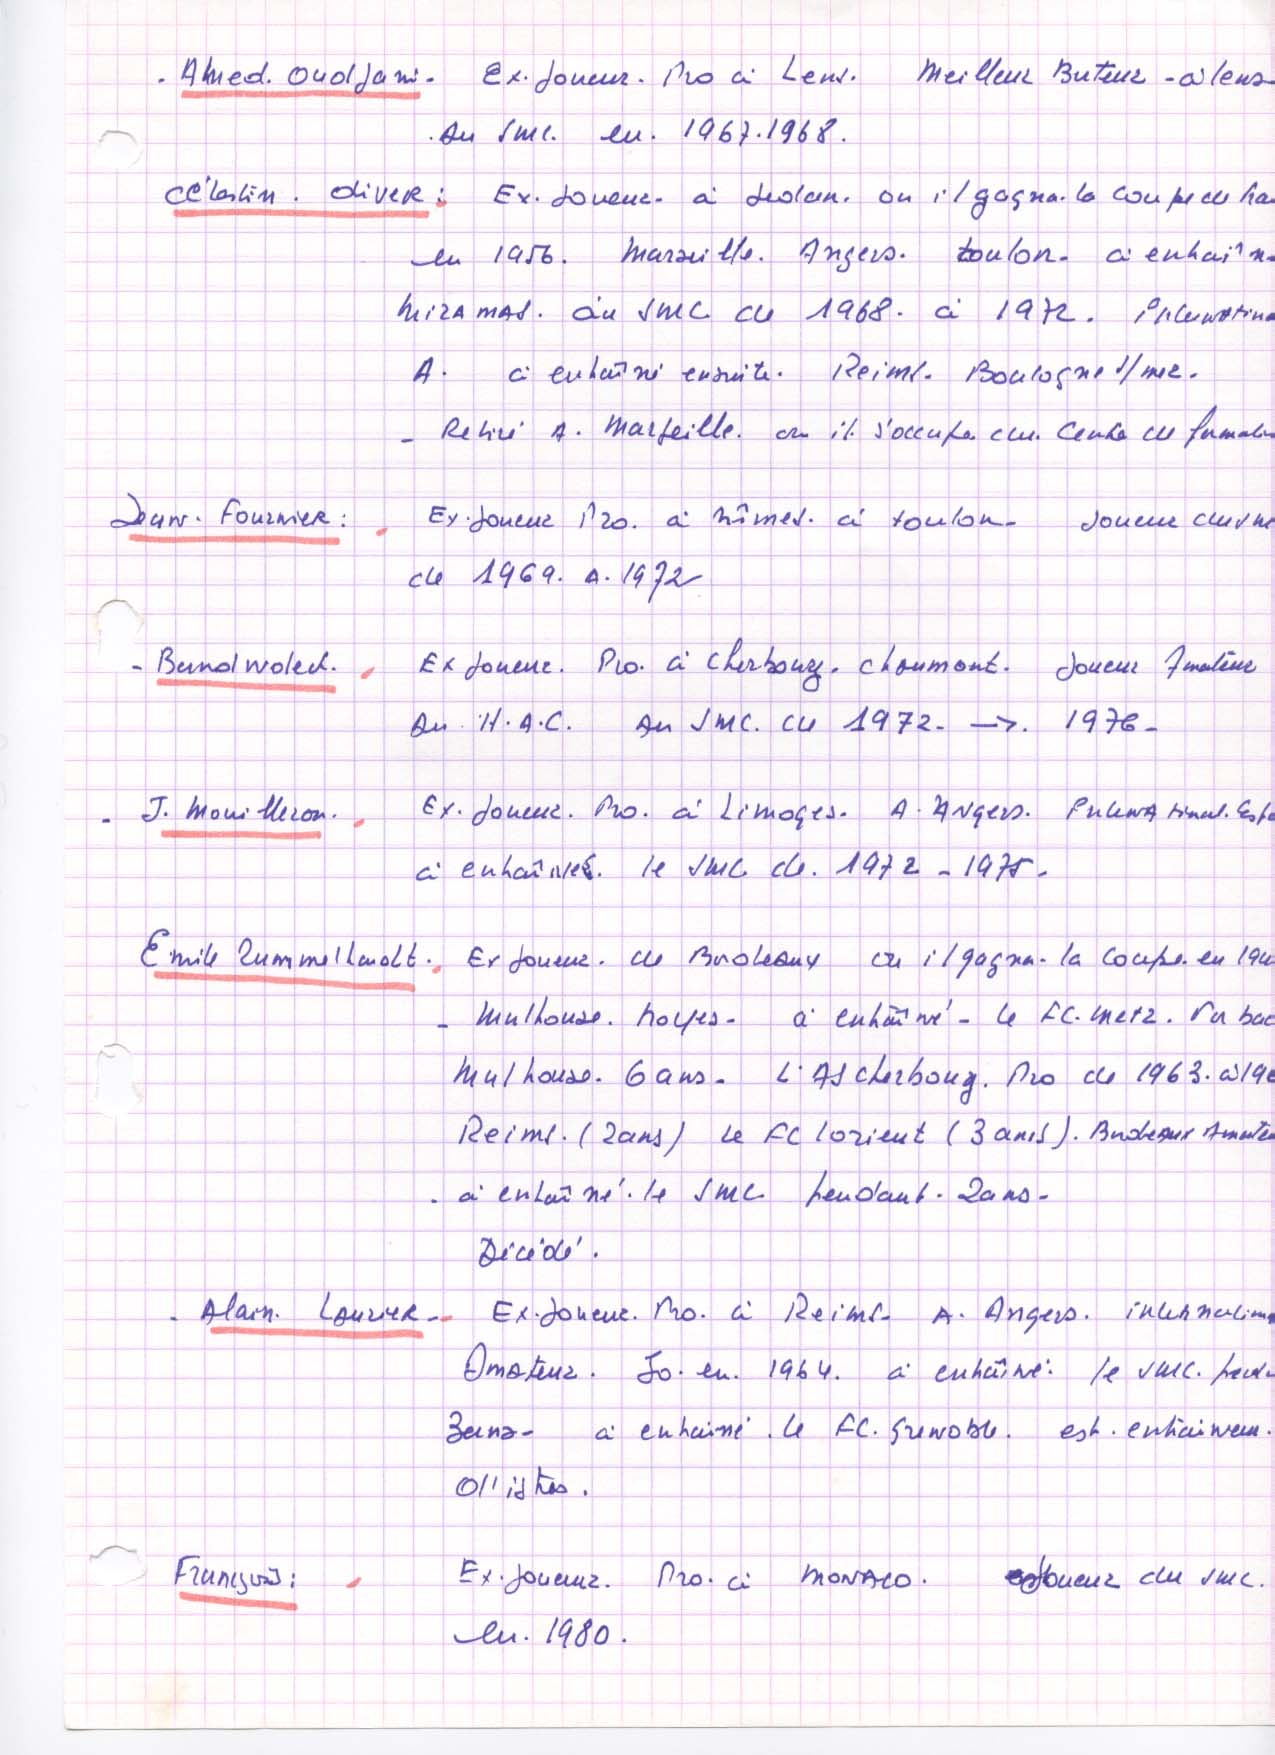 - Ahmed. Oudjani - Ex. Joueur. Pro à Lens. Meilleur Buteur - à Lens -
. Au SMC. en. 1967.1968.
Célestin. Oliver : Ex. Joueur - à Sedan. ou il gagna. la coupe de
en 1956. Marseille. Angers. Toulon - a
MIRAMAS. au SMC de 1968. à 1972.
A. a entraîné ensuite. Reims - Boulogne s/mer.
- Retiré A. Marseille. ou il s'occupe du. Centre de
Jean. Fournier : . Ex. Joueur Pro. à Nîmes. à Toulon - Joueur
de 1969. A. 1972
- . Ex Joueur. Pro. à Cherbourg. Chaumont. Joueur Amateur
Au H.A.C. Au SMC. de 1972 - → . 1976 -
- J. Mouilleron. . Ex. Joueur. Pro. à Limoges. A. Angers.
a entraîné. le SMC de. 1972 - 1975.
Emile Rummelhardt. Ex Joueur. de Bordeaux ou il gagna. la Coupe. en
- Mulhouse. Troyes - a entraîné - le FC. Metz.
Mulhouse. 6 ans - L'AS Cherbourg. Pro de 1963. à
Reims. (2 ans) le FC Lorient (3 ans). Bordeaux
. a entraîné. le SMC pendant. 2 ans -
Décédé.
. Alain. Laurier - Ex. Joueur. Pro. à Reims - A. Angers.
Amateur. Jo. en. 1964. a entraîné. le SMC.
3 ans - a entraîné. le FC. Grenoble. est.
D'Istres.
François : . Ex. Joueur. Pro. à MONACO. Joueur du SMC.
en. 1980.